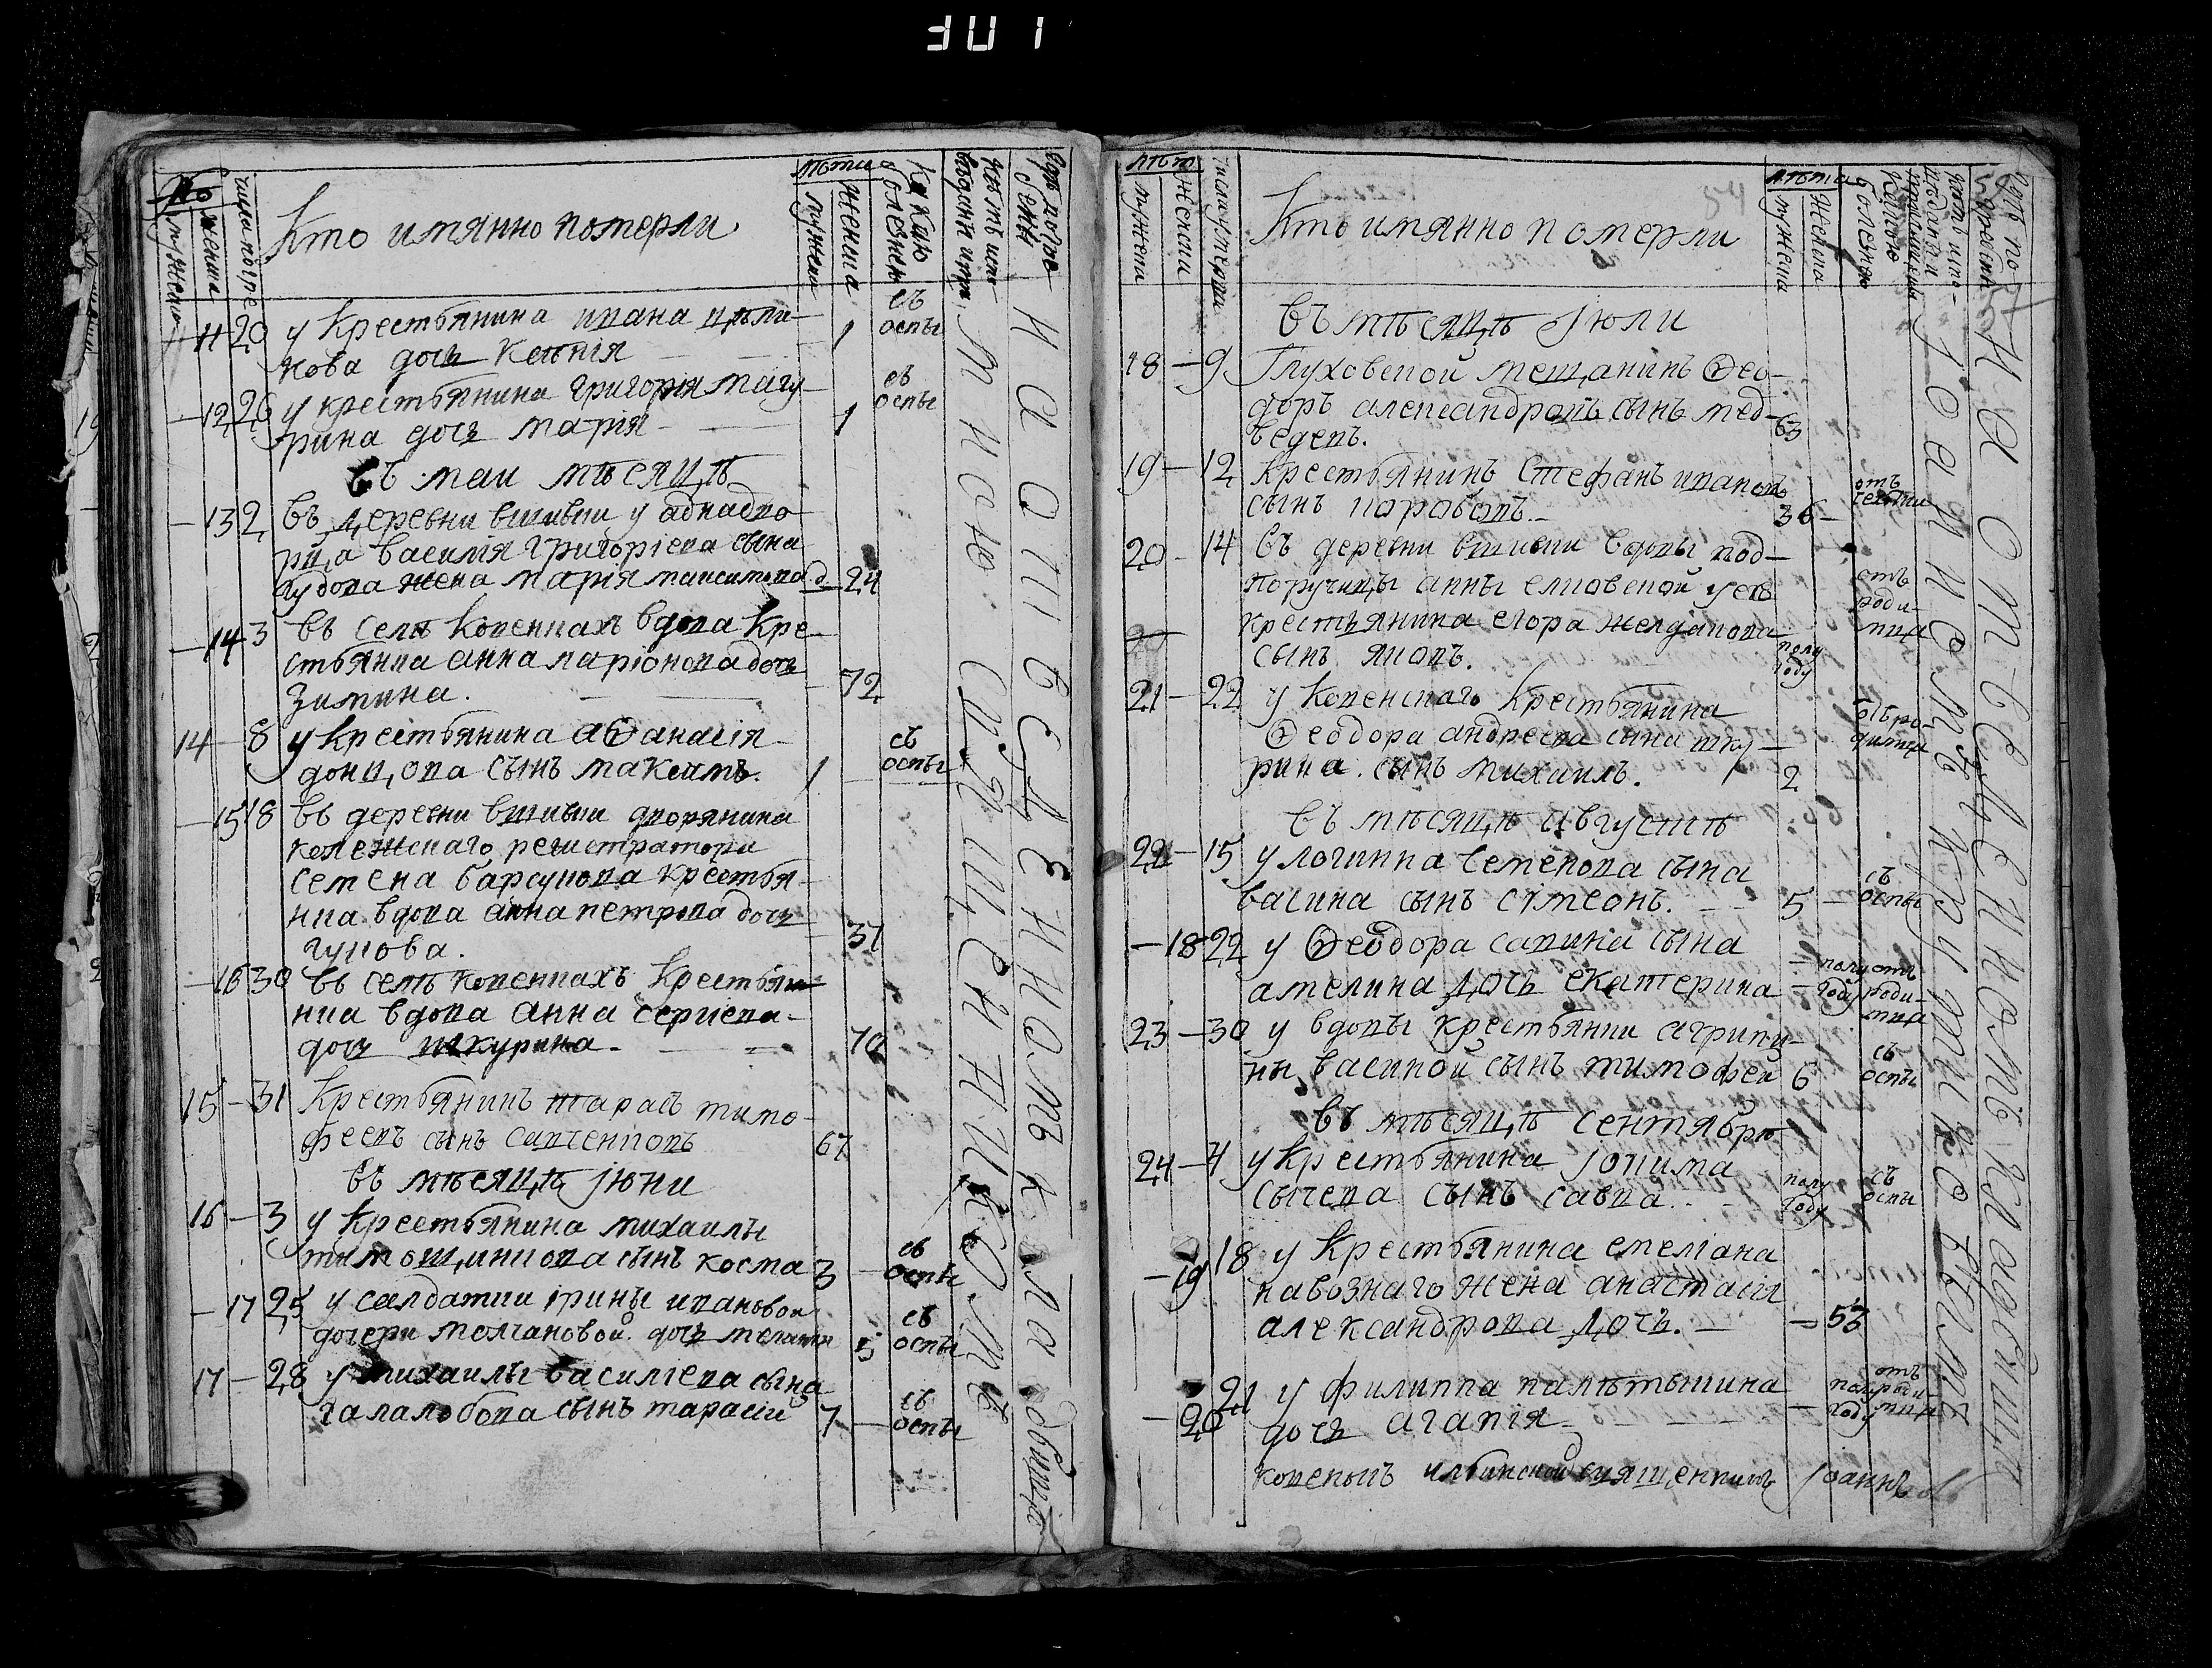 301
Кто имянно померли
11 20 у крестьянина ивана
кова дочь Ксенія 1 съ оспы
12 26 у крестьянина Григорія магу
рина дочь марія 1 съ оспы
въ маи мѣсяцѣ
13 2 въ деревни вшивки у аднадво
рца василия Григоріева сына
гудова жена марія максимова д 24
14 3 въ селѣ Ковенкахъ вдова Кре
стьянка анна ларіонова дочь
Зимина. 72
14 8 у крестьянина аѳанасія
донцова сынъ максимъ. 1 съ оспы
15 18 въ деревни вшивки дворянина
колежскаго регистратора
семена барсукова крестья
нка вдова анна петрова дочь
гукова. 37
16 30 въ селѣ ковенкахъ Крестьян
нка вдова анна сергіева
дочь шкурина 70
15 31 Крестьянинъ тарасъ тимо
феевъ сынъ савченковъ 67
въ мѣсяцѣ Іюни
16 3 у крестьянина михаилы
тимощинкова сынъ косма 3 съ оспы
17 25 у салдатки ірины ивановой
дочери молчановой дочь 5 съ оспы
17 28 у михаилы василіева сына
галалобова сынъ тарасій 7 съ оспы
на отведенномъ кладбищѣ
54
Кто имянно померли
въ мѣсяцѣ Іюли
18 9 Глуховской мещанинъ Ѳео
доръ александровъ сынъ мед
ведевъ. 63
19 12 крестьянинъ Стефанъ ивановъ
сынъ коробовъ 36 отъ
20 14 въ деревни вшивки вдовы под
поручицы анны елковской у ея
крестьянина егора желдакова
сынъ яковъ. полу году отъ роди мца
21 22 у ковенскаго крестьянина
Ѳеодора андреева сына шку
рина сынъ михаилъ. 2
въ мѣсяцѣ августѣ
22 15 у логинна семенова сына
васина сынъ сѵмеонъ. 5 съ оспы
18 22 у Ѳеодора савина сына
амелина дочь екатерина полу году отъ роди мца
23 30 у вдовы крестьянки агрипи
ны васиной сынъ тимофей 6 съ оспы
въ мѣсяцѣ сентябрѣ
24 4 у крестьянина Іокима
сычева сынъ савва. полу году съ оспы
19 18 у крестьянина емеліана
навознаго жена анастасія
александрова дочь. 53
20 21 у филиппа налѣтышина
дочь агапія полу году отъ роди мца
ильинской священникъ Іоаннъ
на отведенномъ кладбищѣ